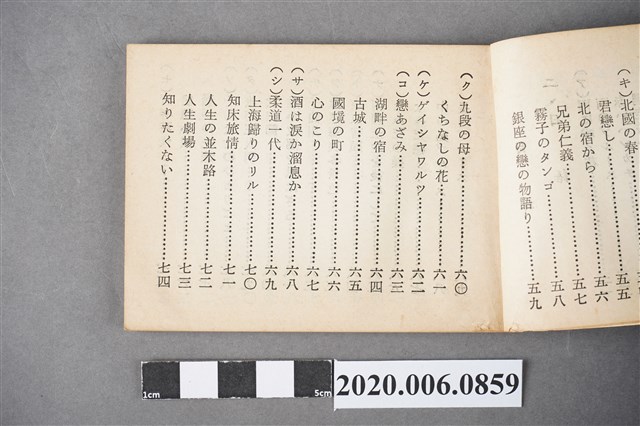 (キ)北國の春……………五五
君戀し……………五六
北の宿から……………五七
兄弟仁義……………五八
霧子のタンゴ……………五九
銀座の戀の物語り……………五九
(ク)九段の母……………六〇
くちなしの花……………六一
(ケ)ゲイシャワルツ……………六二
(コ)戀あざみ……………六三
湖畔の宿……………六四
古城……………六五
國境の町……………六六
心のこり……………六七
(サ)酒は淚か溜息か……………六八
(シ)柔道一代……………六九
上海歸りのリル……………七〇
知床旅情……………七一
人生の並木路……………七二
人生劇場……………七三
知りたくない……………七四
1cm
5cm
2020.006.0859